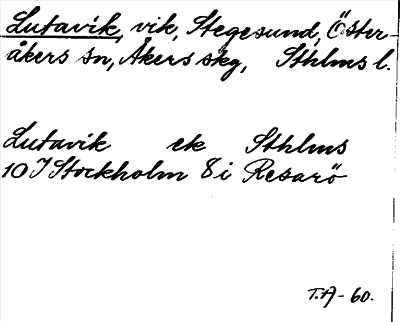 Lutavik, vik, Stegesund, Öster-
åkers sn, Åkers skg, Sthlms l.
Lutavik ek Sthlms
10 I Stockholm 8 i Resarö
T.A-60.